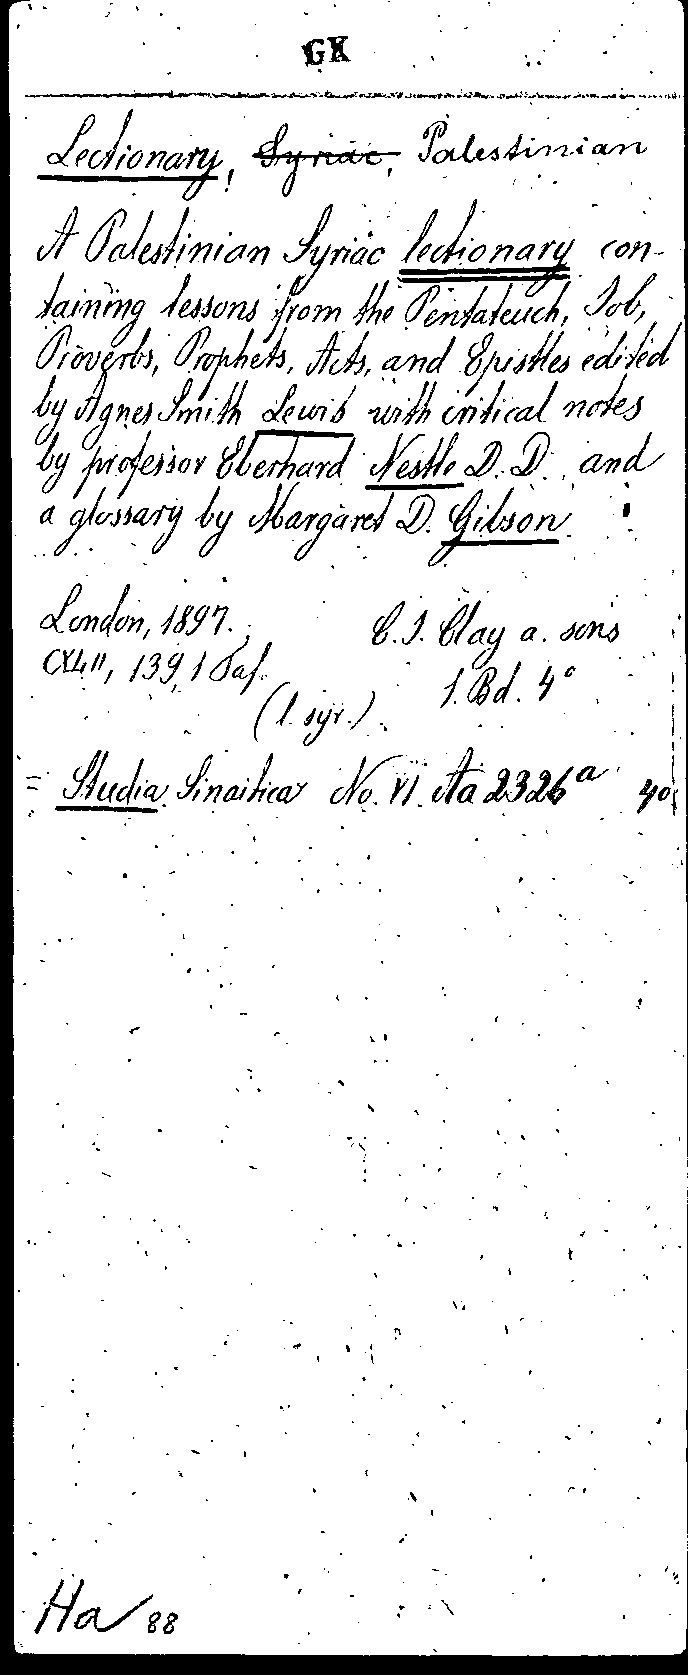 GK
Lectionary, Syriac, Palestinian
A Palestinian Syriac lectionary con-
taining lessons from the Pentateuch, Job,
Proverbs, Prophets, Acts, and Epistles edited
by Agnes Smith Lewis with critical notes
by professor Eberhard Nestle D. D. and
a glossary by Margaret D. Gibson.
London, 1897. C. J. Clay a. sons
CXLII, 139, 1 Taf. 1. Bd. 4°
(l. syr.)
= Studia Sinaitica No. VI. Aa 2326a 4°
Ha 88